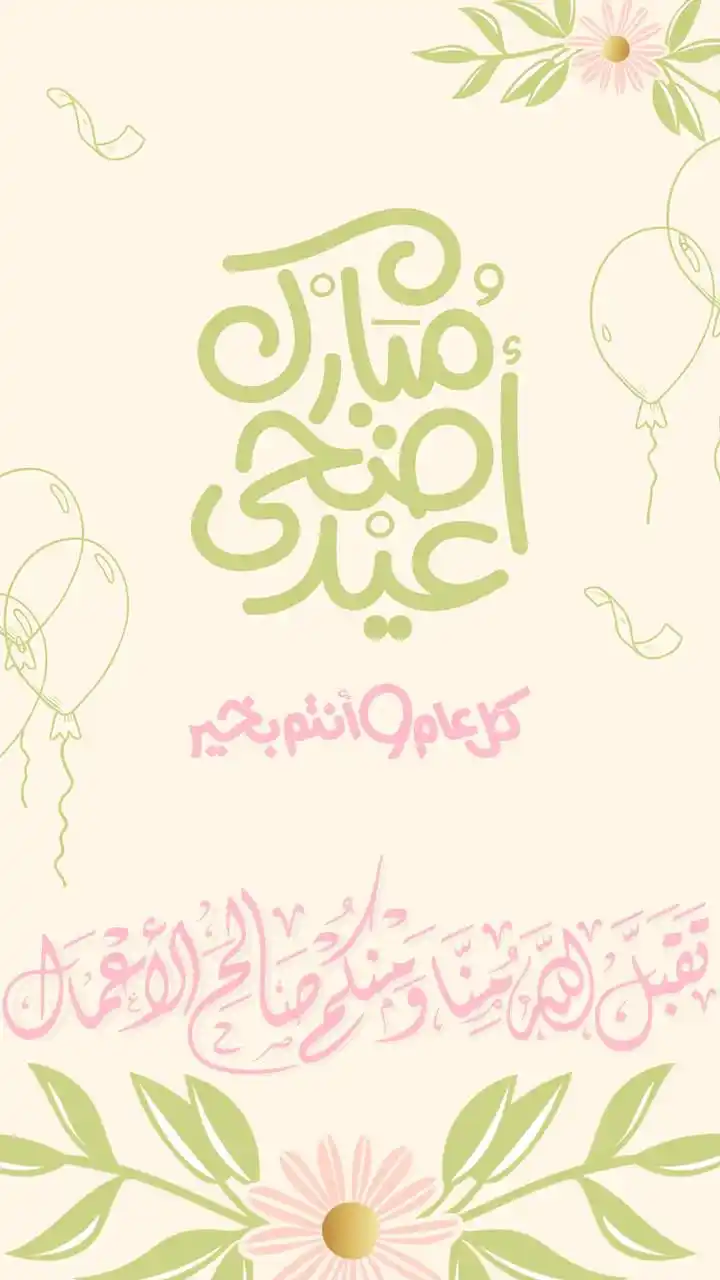 مُبَارْك
أضْحَى
عيْد
كل عام و أنتم بخير
تَقَبَّلَ اللَّه مِنَّا وَمِنْكُم صَالِحَ الأَعْمَال